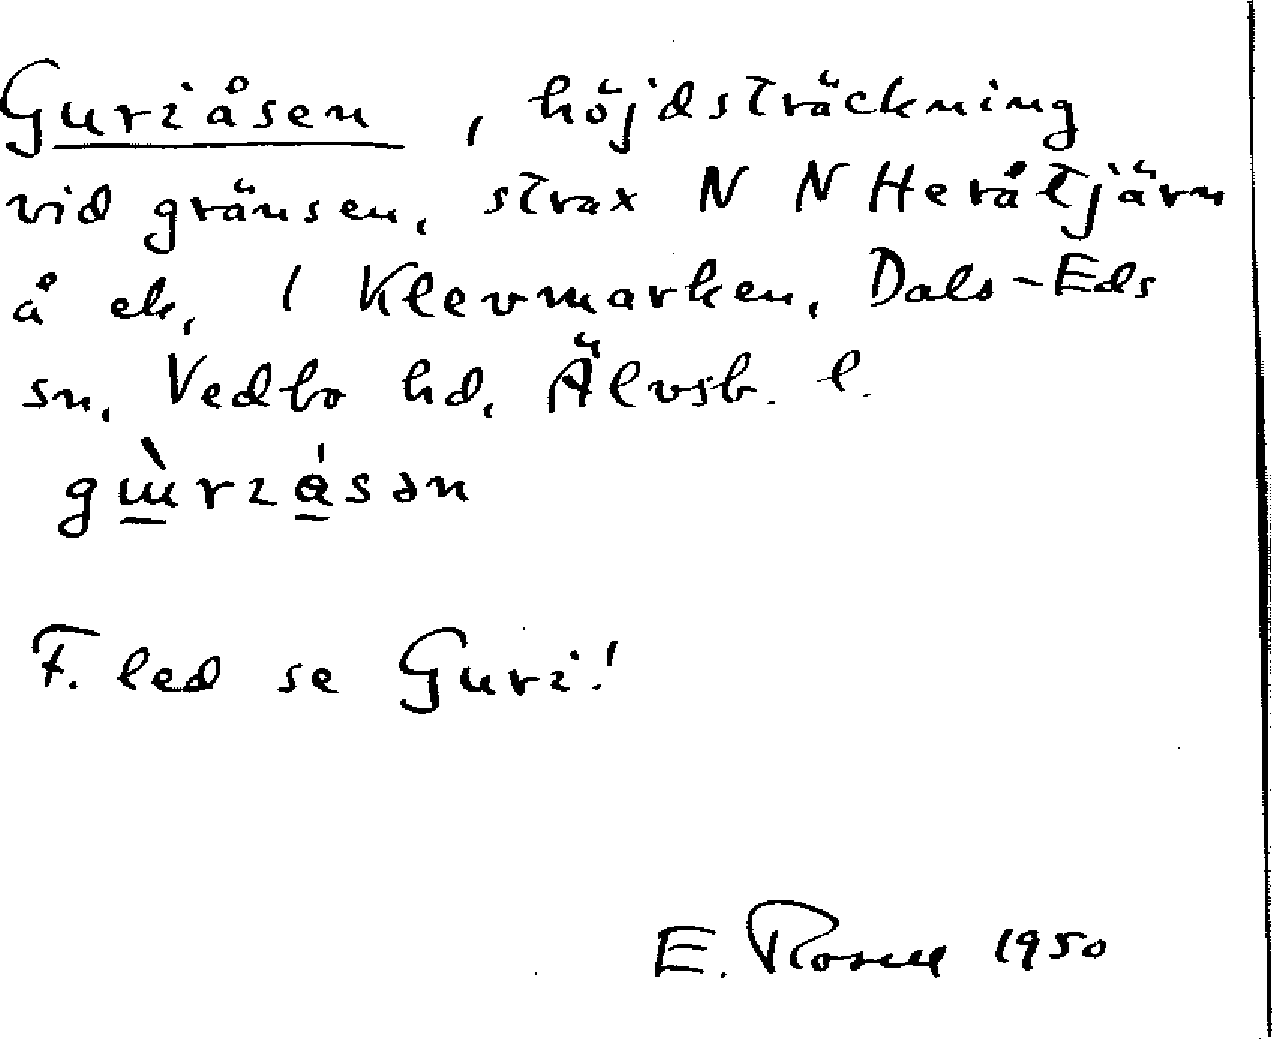 Guriåsen, höjdsträckning
vid gränsen, strax N N Heråtjärn
å ek, 1 Klevmarken, Dals-Eds
sn, Vedbo hd, Älvsb. l.
F. led se Guri!
E. 1950